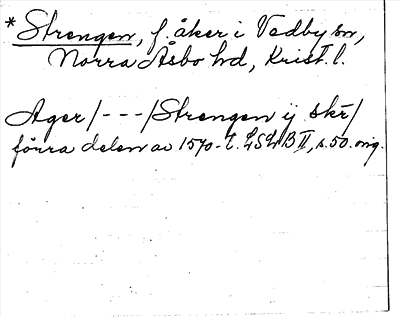 *Strengen, f. åker i Vedby sn,
Norra Åsbo hd, Krist. l.
Ager/---/Strengen ij skr/
förra delen av 1570-t. LSLB II, s. 50. orig.